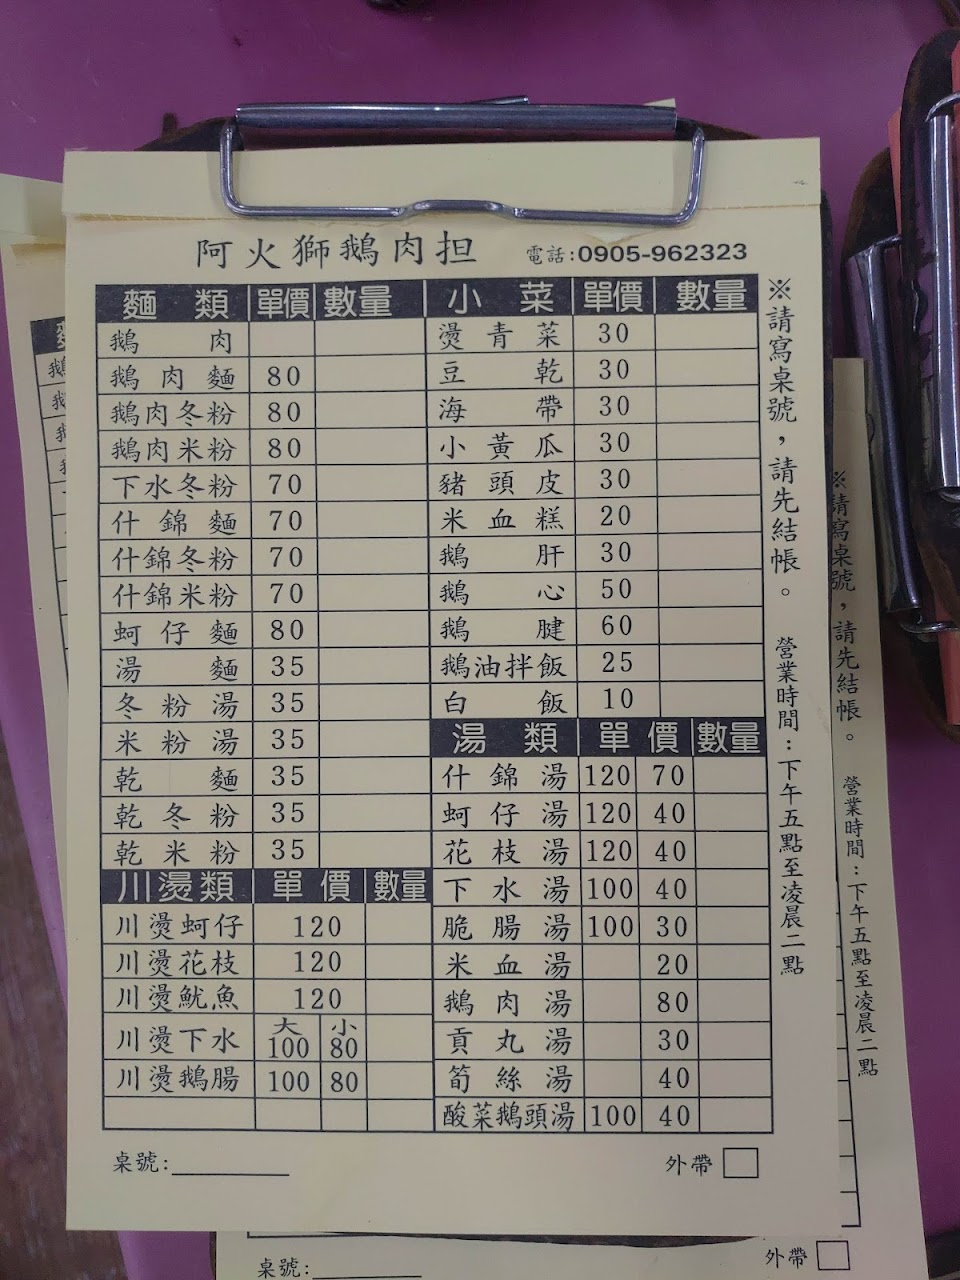 阿火獅鵝肉担 電話:0905-962323
麵類 單價 數量
鵝肉
鵝肉麵 80
鵝肉冬粉 80
鵝肉米粉 80
下水冬粉 70
什錦麵 70
什錦冬粉 70
什錦米粉 70
蚵仔麵 80
湯麵 35
冬粉湯 35
米粉湯 35
乾麵 35
乾冬粉 35
乾米粉 35
川燙類 單價 數量
川燙蚵仔 120
川燙花枝 120
川燙魷魚 120
川燙下水 大100 小80
川燙鵝腸 100 80
小菜 單價 數量
燙青菜 30
豆乾 30
海帶 30
小黃瓜 30
豬頭皮 30
米血糕 20
鵝肝 30
鵝心 50
鵝腱 60
鵝油拌飯 25
白飯 10
湯類 單價 數量
什錦湯 120 70
蚵仔湯 120 40
花枝湯 120 40
下水湯 100 40
脆腸湯 100 30
米血湯 20
鵝肉湯 80
貢丸湯 30
筍絲湯 40
酸菜鵝頭湯 100 40
※請寫桌號，請先結帳。 營業時間：下午五點至凌晨二點
桌號: 外帶
※請寫桌號，請先結帳。 營業時間：下午五點至凌晨二點
桌號: 外帶